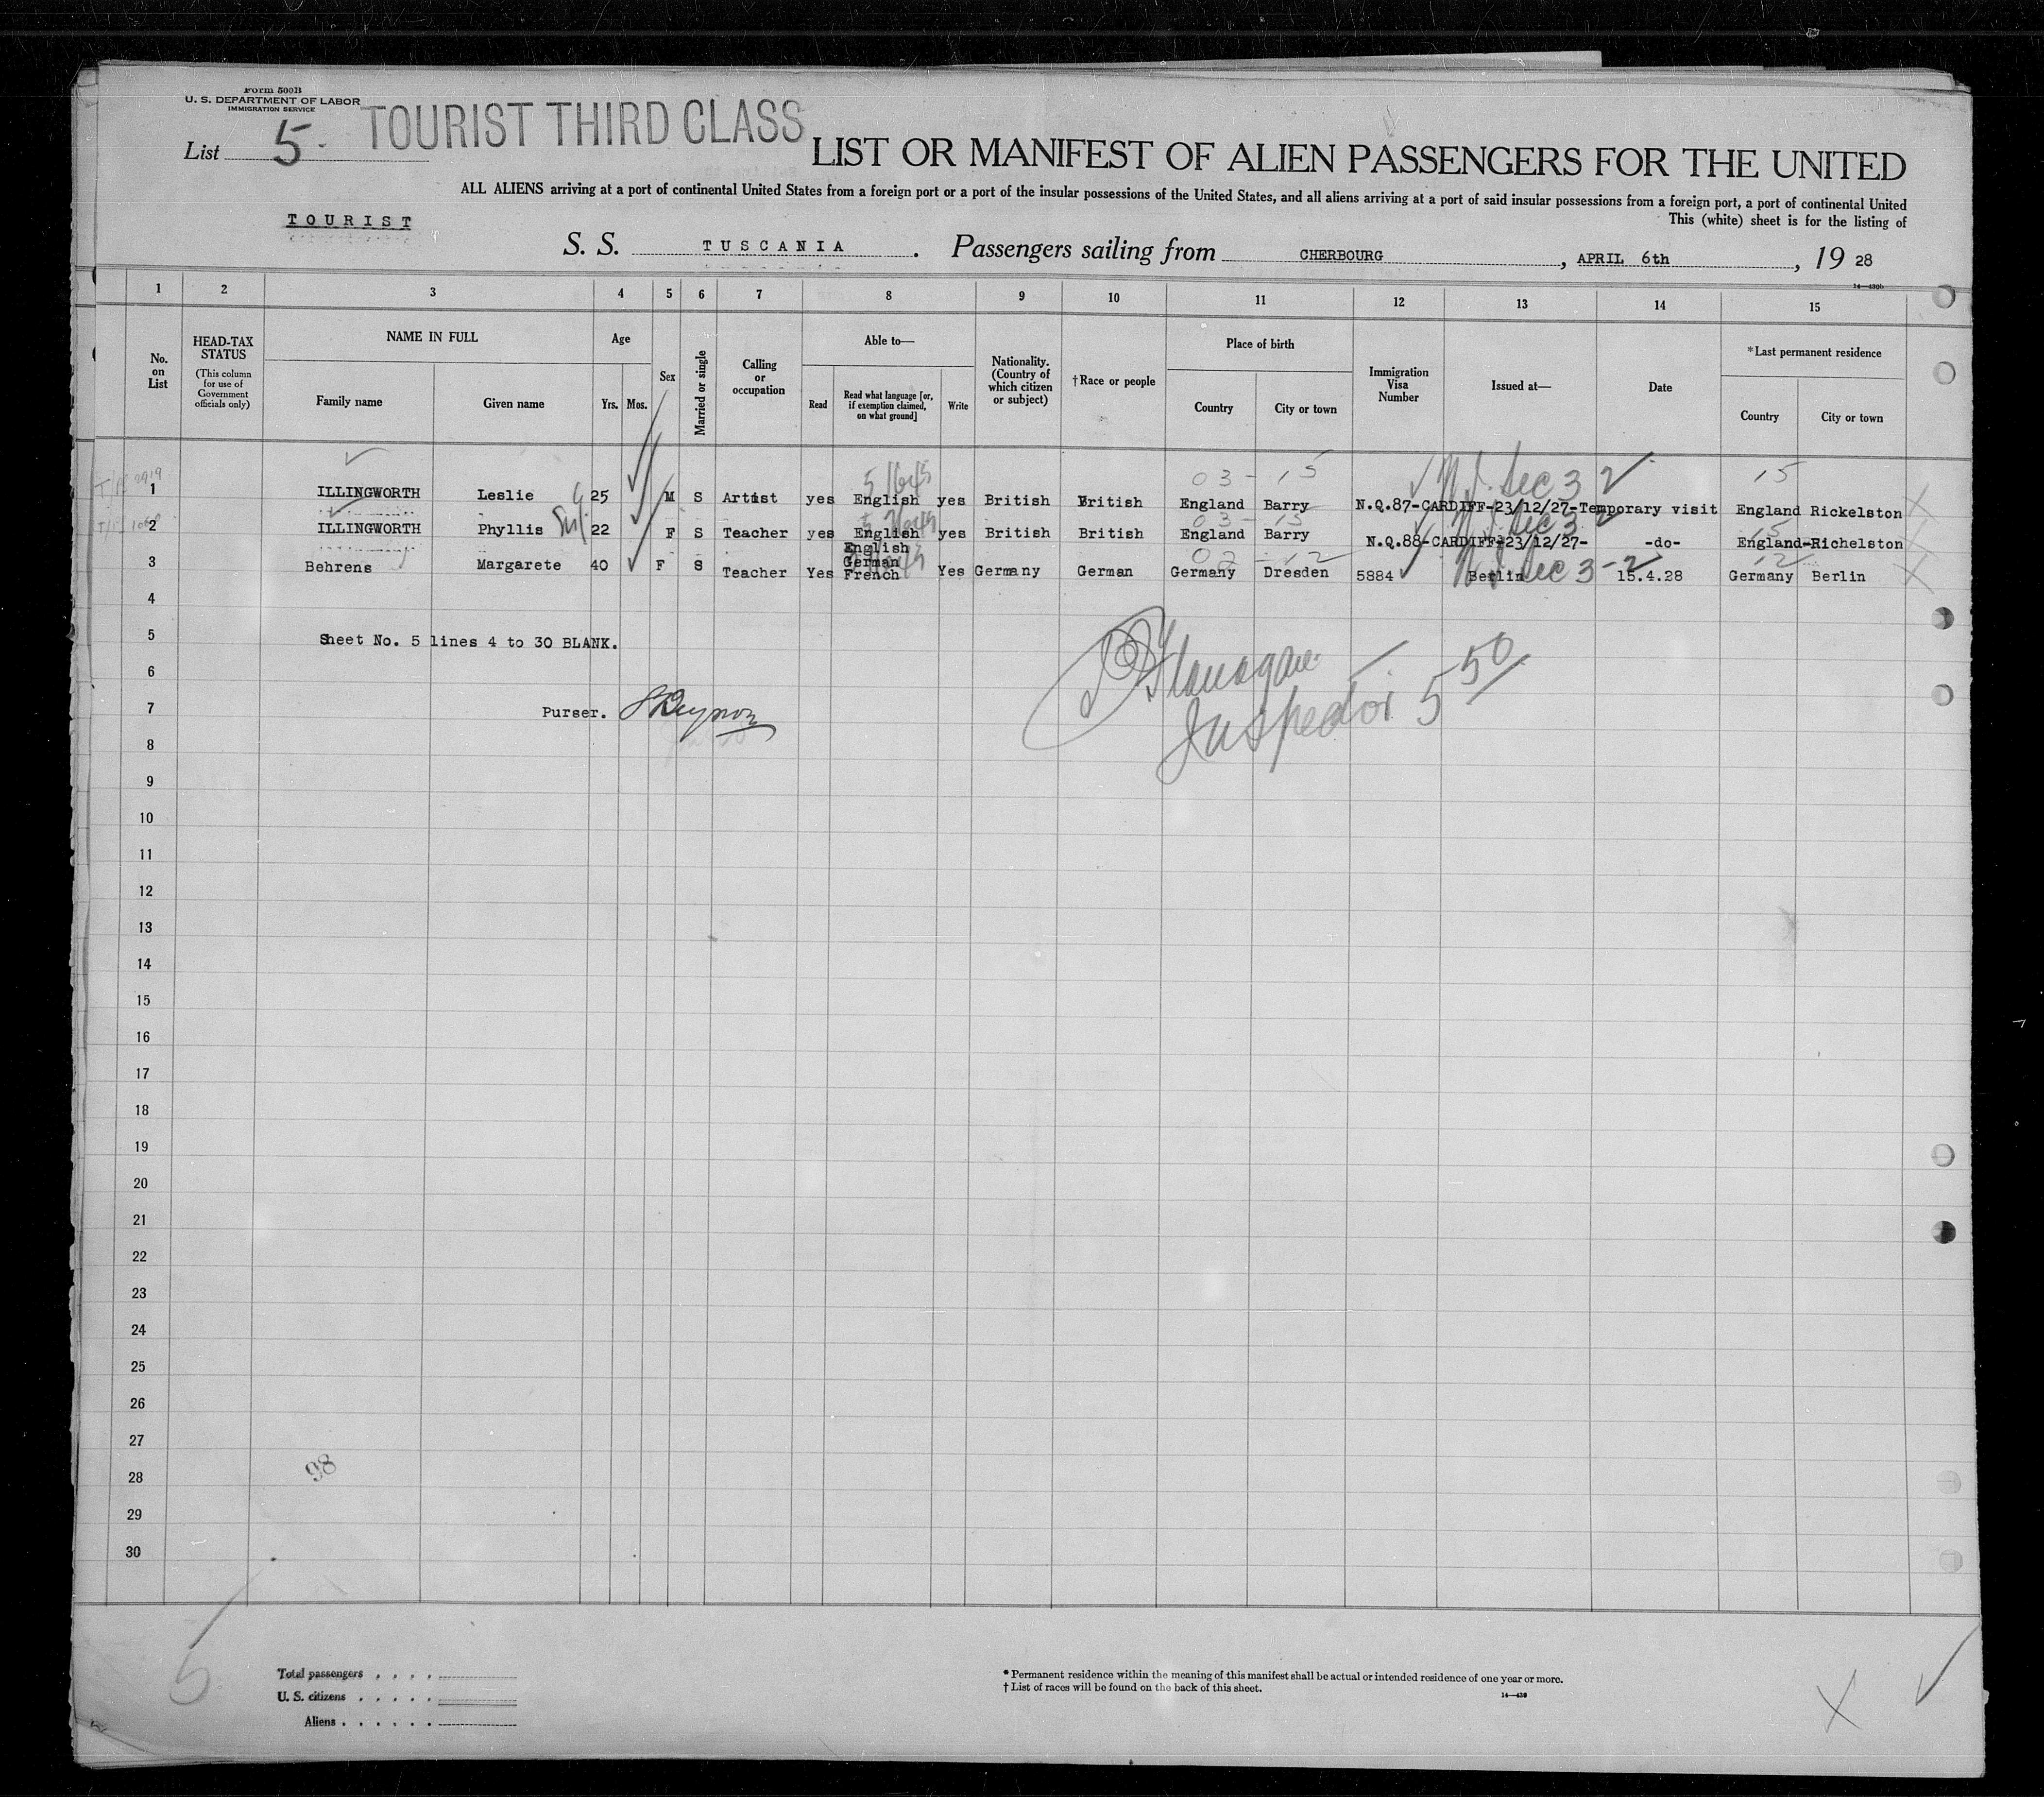 Form 500B
U. S. DEPARTMENT OF LABOR
IMMIGRATION SERVICE
List 5. TOURIST THIRD CLASS
LIST OR MANIFEST OF ALIEN PASSENGERS FOR THE UNITED
ALL ALIENS arriving at a port of continental United States from a foreign port or a port of the insular possessions of the United States, and all aliens arriving at a port of said insular possessions from a foreign port, a port of continental United
This (white) sheet is for the listing of
TOURIST
S. S. TUSCANIA. Passengers sailing from CHERBOURG, APRIL 6th, 19 28
14—430b
1 2 3 4 5 6 7 8 9 10 11 12 13 14 15
No. on List
HEAD-TAX STATUS
(This column for use of Government officials only)
NAME IN FULL
Family name
Given name
Age
Yrs. Mos.
Sex
Married or single
Calling or occupation
Able to—
Read
Read what language [or, if exemption claimed, on what ground]
Write
Nationality. (Country of which citizen or subject)
†Race or people
Place of birth
Country
City or town
Immigration Visa Number
Issued at—
Date
*Last permanent residence
Country
City or town
03-15 15
1 ILLINGWORTH Leslie 25 M S Artist yes English yes British British England Barry N.Q.87-CARDIFF-23/12/27-Temporary visit England Rickelston
03-15 15
2 ILLINGWORTH Phyllis 22 F S Teacher yes English yes British British England Barry N.Q.88-CARDIFF-23/12/27- -do- England-Richelston
3 Behrens Margarete 40 F S Teacher Yes English German French Yes Germany German Germany Dresden 5884 Berlin 15.4.28 Germany Berlin
4
5 Sheet No. 5 lines 4 to 30 BLANK.
6 Flanagan
7 Purser. Inspector 5 50
8
9
10
11
12
13
14
15
16
17
18
19
20
21
22
23
24
25
26
27
28 98
29
30
5
Total passengers . . . .
U. S. citizens . . . . .
Aliens . . . . . .
* Permanent residence within the meaning of this manifest shall be actual or intended residence of one year or more.
† List of races will be found on the back of this sheet.
14—430
X